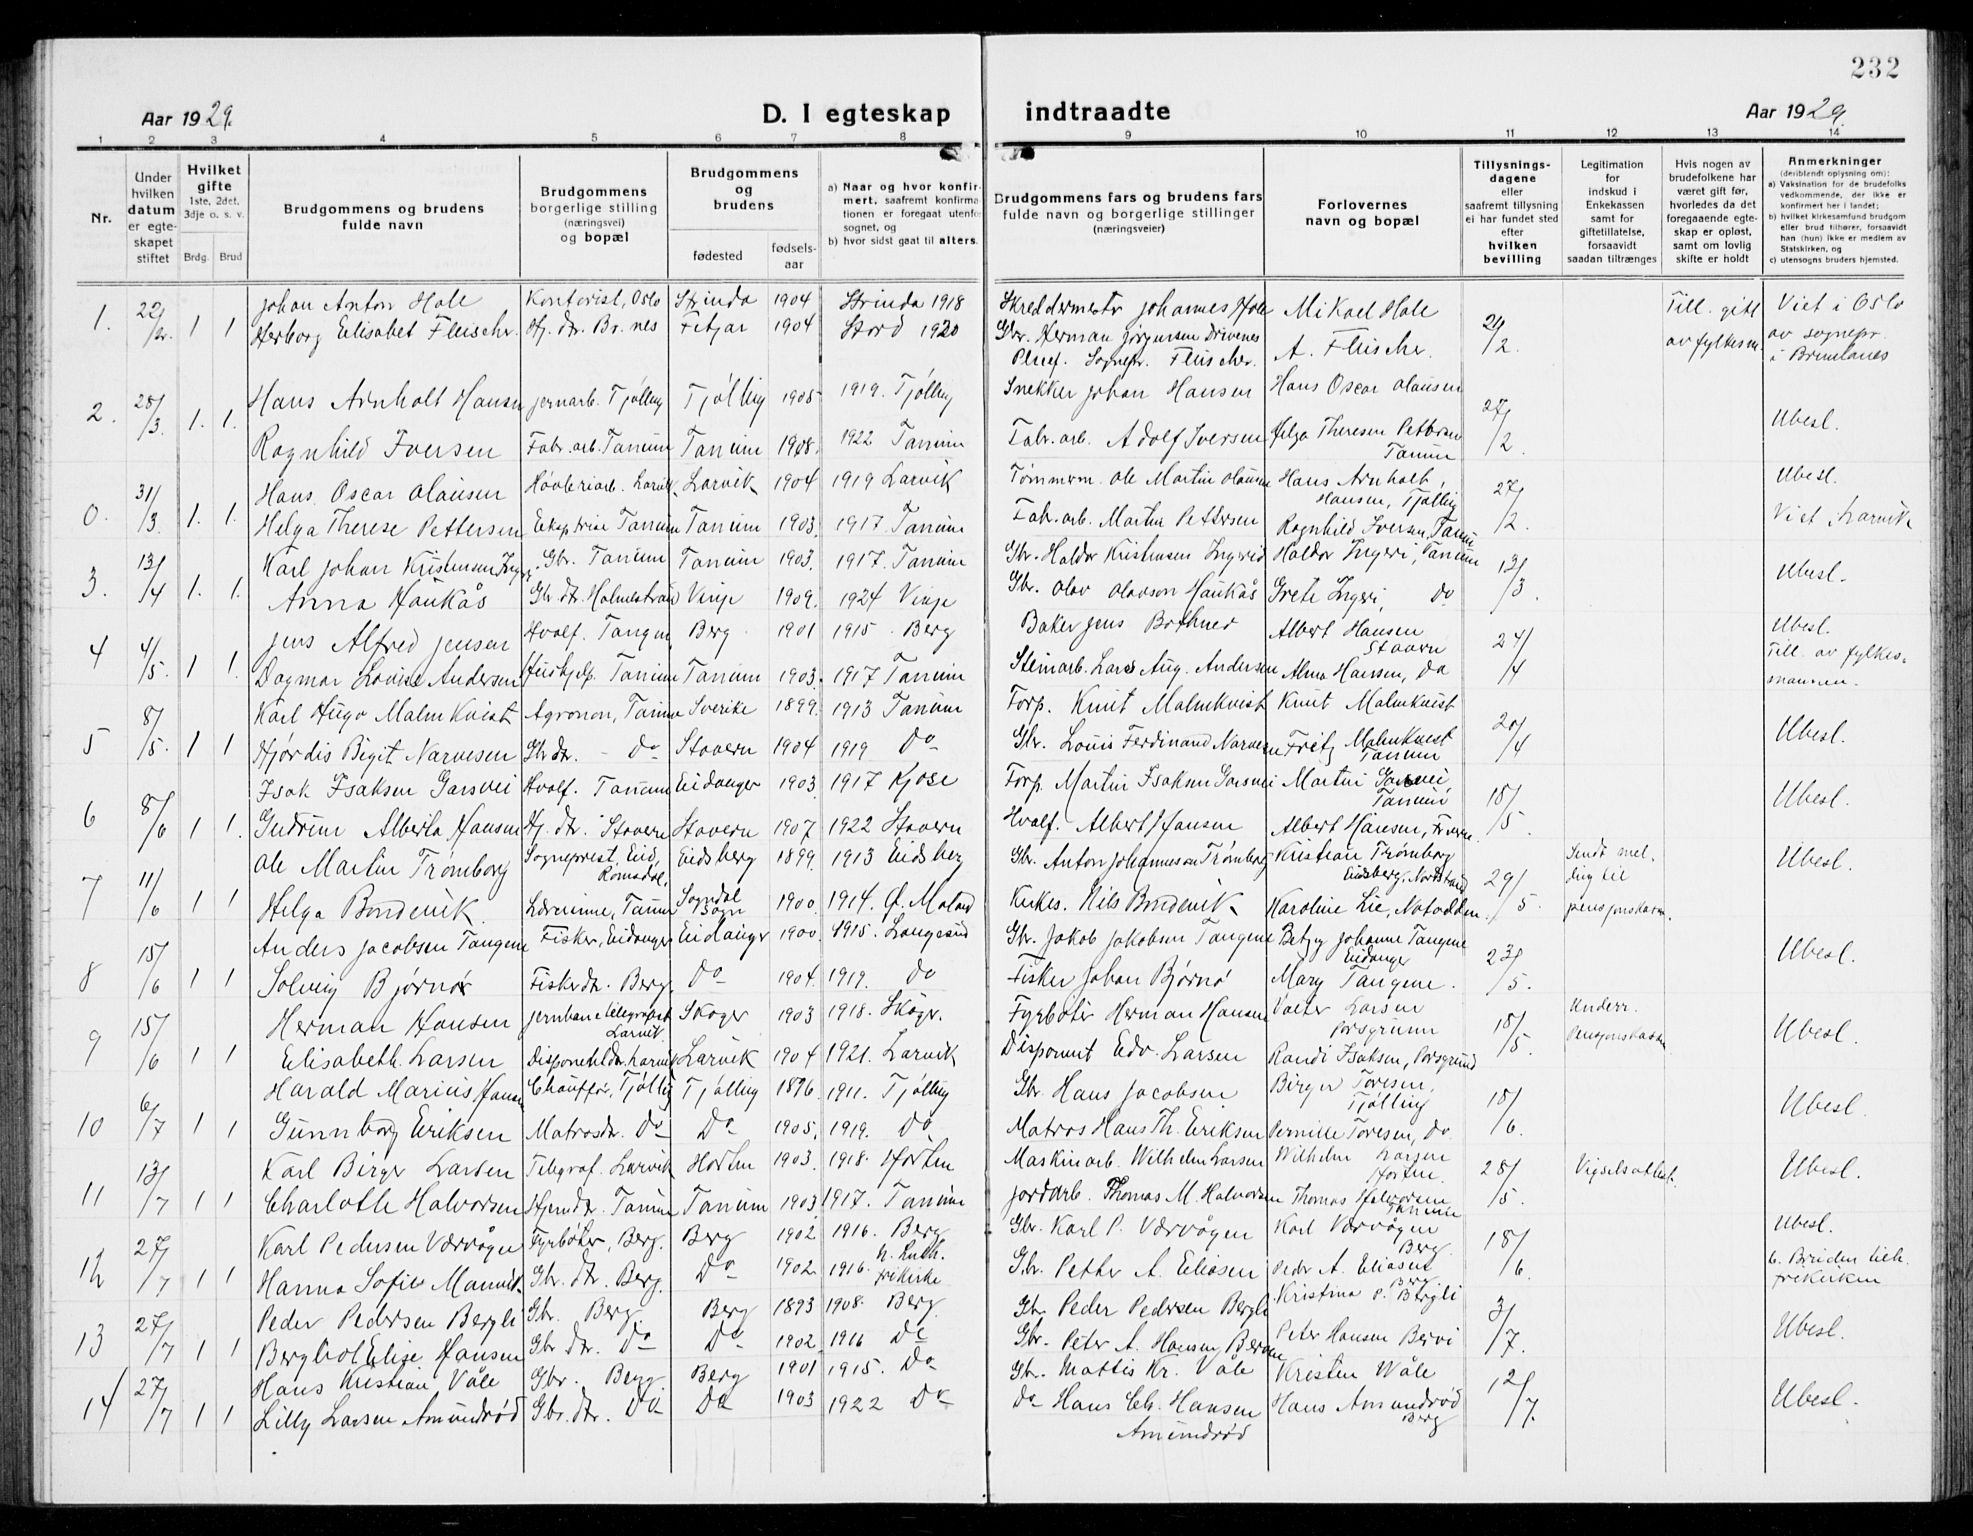 232
Aar 1929. D. I egteskap indtraadte Aar 1929.
1 2 3 4 5 6 7 8 9 10 11 12 13 14
Nr.
Under hvilken datum er egteskapet stiftet
Hvilket gifte 1ste, 2det, 3dje o. s. v.
Brdg. Brud
Brudgommens og brudens fulde navn
Brudgommens borgerlige stilling (næringsvei) og bopæl
Brudgommens og brudens
fødested
fødselsaar
a) Naar og hvor konfirmert, saafremt konfirmationen er foregaat utenfor sognet, og
b) hvor sidst gaat til alters.
Brudgommens fars og brudens fars fulde navn og borgerlige stillinger (næringsveier)
Forlovernes navn og bopæl
Tillysningsdagene eller saafremt tillysning ei har fundet sted efter hvilken bevilling
Legitimation for indskud i Enkekassen samt for giftetillatelse, forsaavidt saadan tiltrænges
Hvis nogen av brudefolkene har været gift før, hvorledes da det foregaaende egteskap er opløst, samt om lovlig skifte er holdt
Anmerkninger (deriblandt oplysning om):
a) Vaksination for de brudefolks vedkommende, der ikke er konfirmert her i landet;
b) hvilket kirkesamfund brudgom eller brud tilhører, forsaavidt han (hun) ikke er medlem av Statskirken, og
c) utensogns bruders hjemsted.
1. 1 1 Johan Anton Hole Kontorist, Oslo Strinda 1904 Strinda 1918 Skreddermestr Johannes Hole Mikael Hole Till. gitt av fylkesm. Viet i Oslo av sognepr. i Brunlanes
Herborg Elisabet Fleischer Hj. dr. Br.nes Fitjar 1904 Stord 1920 Gbr. Herman Jørgensen Drivenes Pleief. Sognepr. Fleischer. A. Fleischer.
2. 28/3. 1. 1. Hans Arnholt Hansen Jernarb. Tjølling Tjølling 1905 1919. Tjølling Snekker Johan Hansen Hans Oscar Olausen 27/2 Ubesl.
Ragnhild Iversen Fabr. arb. Tanum Tanum 1908. 1922 Tanum Fabr. arb. Adolf Iversen Helga Therese Pettersen Tanum
0. 31/3. 1. 1. Hans Oscar Olausen Høvleriarb. Larvik Larvik 1904 1919 Larvik Tømmerm. Ole Martin Olausen Hans Arnholt Hansen, Tjølling 27/2. Ubesl.
Helga Therese Pettersen Tanum Tanum 1903. 1917. Tanum Fabr. arb. Martin Pettersen Ragnhild Iversen, Tanum Viet Larvik
3. 13/4 1. 1. Karl Johan Kristensen Gbr. Tanum Tanum 1903. 1917. Tanum Gbr. Haldor Kristensen Haldor Ingeri, Tanum 13/3. Ubesl.
Anna Haukås Gbr. dr. Holmestrand Vinje 1909. 1924 Vinje Gbr. Olav Olavson Haukås Grete Ingeri, Do
4 4/5. 1 1. Jens Alfred Jensen Hvalf. Tangen Berg 1901 1915. Berg Baker Jens Bothner Albert Hansen Stavern 24/4 Ubesl. Till. av fylkesmannen.
Dagmar Lovise Andersen Hushjelp. Tanum Tanum 1903. 1917 Tanum Steinarb. Lars Aug. Andersen Alma Hansen, Do
5 8/5. 1 1 Karl Hugo Malmkvist Agronom, Tanum Sverike 1899. 1913 Tanum Forp. Knut Malmkvist Knut Malmkvist 20/4 Ubesl.
Hjørdis Bigit Narvesen Gbr dr. - Do Stavern 1904 1919 Do Gbr. Louis Ferdinand Narvesen Fritz Malmkvist Tanum
6 8/6 1 1. Isak Isaksen Garsvei Hvalf. Tanum Eidanger 1903. 1917 Kjose Forp. Martin Isaksen Garsvei Martin Garsvei Tanum 18/5. Ubesl.
Gudrun Alberta Hansen Hj. dr. Stavern Stavern 1907. 1922 Stavern Hvalf. Albert Hansen Albert Hansen,
7 11/6 1 1 Ole Martin Trømborg Sogneprest, Eid, Romsdal. Eidsberg 1899. 1913 Eidsberg Gbr. Anton Johannesen Trømborg Kristian Trømborg Eidsberg, Nordstrand 29/5. Sendt melding til pensjonskassen. Ubesl.
Helga Bondevik. Lærerinne, Tanum Sogndal Sogn 1900. 1914. Kirkes. Nils Bondevik Karoline Lie, Notodden.
8 15/6 1 1 Anders Jacobsen Tangene Fisker, Eidanger Eidanger 1900. 1915. Langesund Gbr. Jakob Jakobsen Tangene Betzy Johanne Tangene Eidanger 23/5. Ubesl.
Solveig Bjørnø Fisker dr. Berg. Do 1904. 1919. Do Fisker Johan Bjørnø Mary Tangene.
9 15/6 1 1 Herman Hansen Jernbanetelegrafist Larvik Skoger 1903 1918. Skoger. Fyrbøter Herman Hansen Valter Larsen Porsgrunn 18/5. Underr. Pensjonskassen Ubesl.
Elisabeth Larsen Disponent dr. Larvik Larvik 1904 1921. Larvik Disponent Edv. Larsen Randi Isaksen, Porsgrund
10 6/7 1 1 Harald Marius Hansen Chauffør, Tjølling Tjølling 1896 1911. Tjølling Gbr. Hans Jacobsen Birger Toresen, Tjølling 18/6. Ubesl.
Gunnborg Eriksen Matros dr. Do Do 1905. 1919. Do Matros Hans Th. Eriksen Pernille Toresen, Do
11 13/7 1 1 Karl Birger Larsen Telegraf. Larvik Horten 1903. 1918. Horten Maskinarb. Wilhelm Larsen Wilhelm Larsen Horten 28/5. Vigselsattest. Ubesl.
Charlotte Halvorsen Hjem dr. Tanum Tanum 1903. 1917. Tanum Jordarb. Thomas M. Halvorsen Thomas Halvorsen Tanum
12 27/7 1 1 Karl Pedersen Værvågen Fyrbøter, Berg. Berg 1902 1916. Berg Gbr. Karl P. Værvågen Karl Værvågen Berg 18/6 Ubesl.
Hanna Sofie Gbr. dr. Berg. Do 1902. 1916. frikirke Gbr. Petter A. Eliasen Peder A. Eliasen Berg b. Bruden luth. frikirken
13 27/7 1 1 Peder Pedersen Bergli Gbr. Berg Berg 1893 1908. Berg Gbr. Peder Pedersen Bergli Kristina P. Bergli 3/7. Ubesl.
Bergliot Elise Hansen Gbr. dr. Do Do 1902. 1916 Do Gbr. Peter A. Hansen Peter Hansen
14 27/7 1 1 Hans Kristian Våle Gbr. Berg Berg 1901 1915. Do Gbr. Mattis Kr. Våle Kristen Wåle 12/7. Ubesl.
Lilly Larsen Amundrød Gbr. dr. Do Do 1903 1922 Do Do Hans Chr. Hansen Amundrød Hans Amundrød Berg